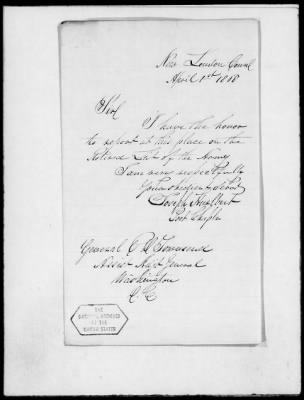 New London Conn
April 1st 1868
Sir
I have the honor
to report at this place on the
Retired List of the Army
I am very respectfully
Your obedient Servt
Joseph Hurlbut
Post Chapln
General E D Townsend
Assist Adjt General
Washington
D.C.
THE
NATIONAL ARCHIVES
OF THE
UNITED STATES